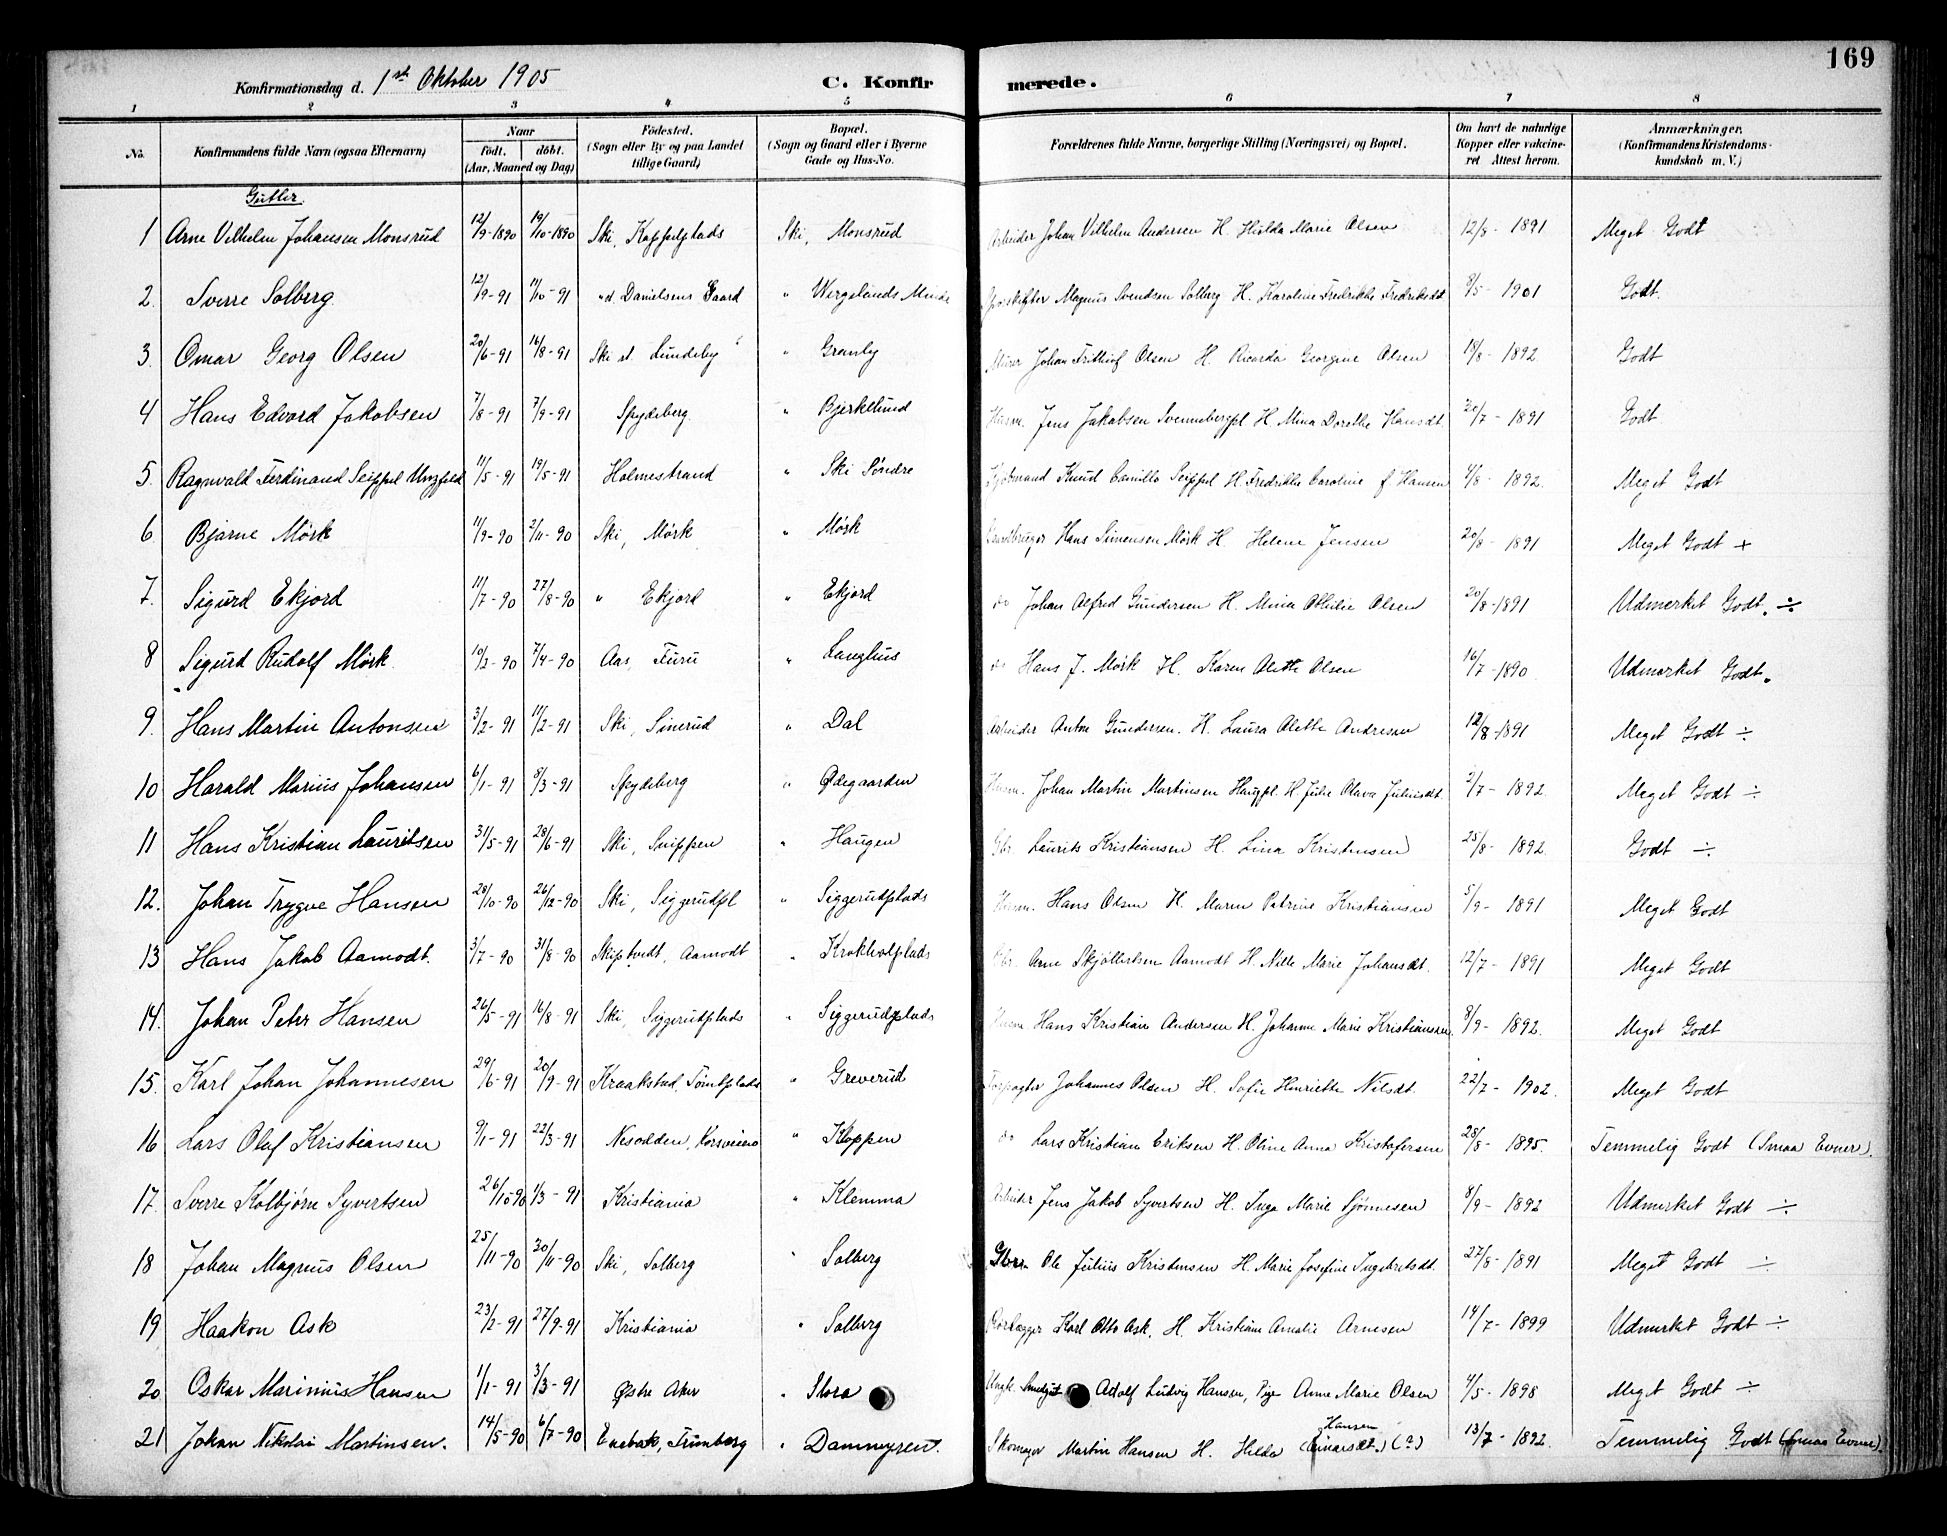 169
Konfirmationsdag d. 1st Oktober 1905 C. Konfirmerede.
1 2 3 4 5 6 7 8
No. Konfirmandens fulde Navn (ogsaa Efternavn) Naar født. døbt. (Aar, Maaned og Dag) Fødested. (Sogn eller By og paa Landet tillige Gaard) Bopæl. (Sogn og Gaard eller i Byerne Gade og Hus-No. Forældrenes fulde Navne, borgerlige Stilling (Næringsvei) og Bopæl. Om havt de naturlige Kopper eller vaccineret Attest herom. Anmærkninger. (Konfirmandens Kristendomskundskab m. V.)
Gutter.
1 Arne Vilhelm Johansen Monsrud 12/9-1890 19/10-1890 Ski, Kappelplads Ski, Monsrud Arbeider Johan Vilhelm Andersen H. Hilda Marie Olsen 12/8-1891 Meget Godt
2. Sverre Solberg. 12/9-91 11/10-91 "d. Danielsens Gaard " Wergelands Minde Magnus Svendsen Solberg H. Karoline Fredrikke Fredriksdt 8/5-1901 Godt.
3. Omar Georg Olsen 20/6-91 16/8-91 Ski st. Lundeby " Granly Murer Johan Frithiof Olsen H. Ricarda Georgine Olsen 18/8-1892 Godt
4 Hans Edvard Jakobsen 7/8-91 7/9-91 Spydeberg. " Bjerkelund Husm. Jens Jakobsen Svennebergpl H. Mina Dorethe Hansdt. 20/7-1891 Godt
5. Ragnvald Ferdinand Seippel 11/5-91 19/5-91 Holmestrand " Ski Søndre Knud Camillo Seippel H. Fredrikke Caroline f Hansen 4/8-1892. Meget Godt
6 Bjarne Mörk 11/9-90 2/11-90 Ski, Mörk " Mörk Gaardbruger Hans Simensen Mörk H. Helene Jensen 20/8-1891 Meget Godt +
7. Sigurd Ekjord 11/7-90 27/8-90 " Ekjord " Ekjord do Johan Alfred Gundersen H. Mina Othilie Olsen 20/8-1891 Udmerket Godt. ÷
8 Sigurd Rudolf Mörk. 10/2-90 7/4-90 Aas, Furu " Langhus do Hans J. Mörk H. Karen Alethe Olsen 16/7-1890 Udmerket Godt.
9. Hans Martin Antonsen 3/2-91 11/2-91 Ski, Sinerud " Dal Arbeider Anton Gundersen. H. Laura Alette Andresen 12/8-1891 Meget Godt ÷
10 Harald Marius Johansen 6/1-91 8/3-91 Spydeberg " Ødegaarden Husm. Johan Martin Martinsen Haugpl. H. Julie Olava Juliusdt. 2/7-1892. Meget Godt ÷
11 Hans Kristian Lauritsen 31/5-91 28/6-91 Ski, Snippen " Haugen Gbr Laurits Kristiansen H. Lina Kristensen 25/8-1892. Godt ÷
12. Johan Trygve Hansen 28/10-90 26/12-90 Ski, Siggerudpl " Siggerudplads Husm. Hans Olsen H. Maren Petrine Kristiansen 5/9-1891 Meget Godt
13 Hans Jakob Aamodt. 3/7-90 31/8-90 Skiptvedt, Aamodt " Krokholplads Gbr. Arne Skjöllertsen Aamodt H. Nille Marie Johansdt. 12/7-1891 Meget Godt
14. Johan Peter Hansen 26/5-91 16/8-91 Ski, Siggerudplads " Siggerudplads Husm Hans Kristian Andersen H. Johanne Marie Kristiansen 8/9-1892. Meget Godt
15. Karl Johan Johannesen 29/6-91 20/9-91 Kraakstad, Tömtplads " Greverud Forpagter Johannes Olsen H. Sofie Henriette Nilsdt. 22/7-1902. Meget Godt
16 Lars Oluf Kristiansen 9/1-91 22/3-91 Nesodden, " Kloppen do Lars Kristian Eriksen H. Oline Anna Kristofersen 28/8-1895. Temmelig Godt (Smaa Evner).
17. Sverre Kolbjörn Syvertsen 26/10-90 1/3-91 Kristiania " Klemma Arbeider Jens Jakob Syvertsen H. Inga Marie Sjönnesen 8/9-1892 Udmerket Godt ÷
18 Johan Magnus Olsen 25/11-90 30/11-90 Ski, Solberg " Solberg Gbr. Ole Julius Kristensen H. Marie Josefine Ingebretsdt. 27/8-1891 Meget Godt ÷
19 Haakon Ask 23/2-91 27/9-91 Kristiania " Solberg Rörlægger Karl Otto Ask, H. Kristiane Amalie Arnesen 14/7-1899 Udmerket Godt ÷
20 Oskar Marinius Hansen 1/1-91 3/3-91 Østre Aker " Stora Ungk. Adolf Ludvig Hansen, Pige Anne Marie Olsen 4/5-1898 Meget Godt ÷
21 Johan Nikolai Martinsen. 14/5-90 6/7-90 Enebak, Trimborg " Dammyren. Skomager Martin Hansen H. Hilda Hansen (Einarsdt.) (?) 13/7-1892. Temmelig Godt (Smaa Evner).